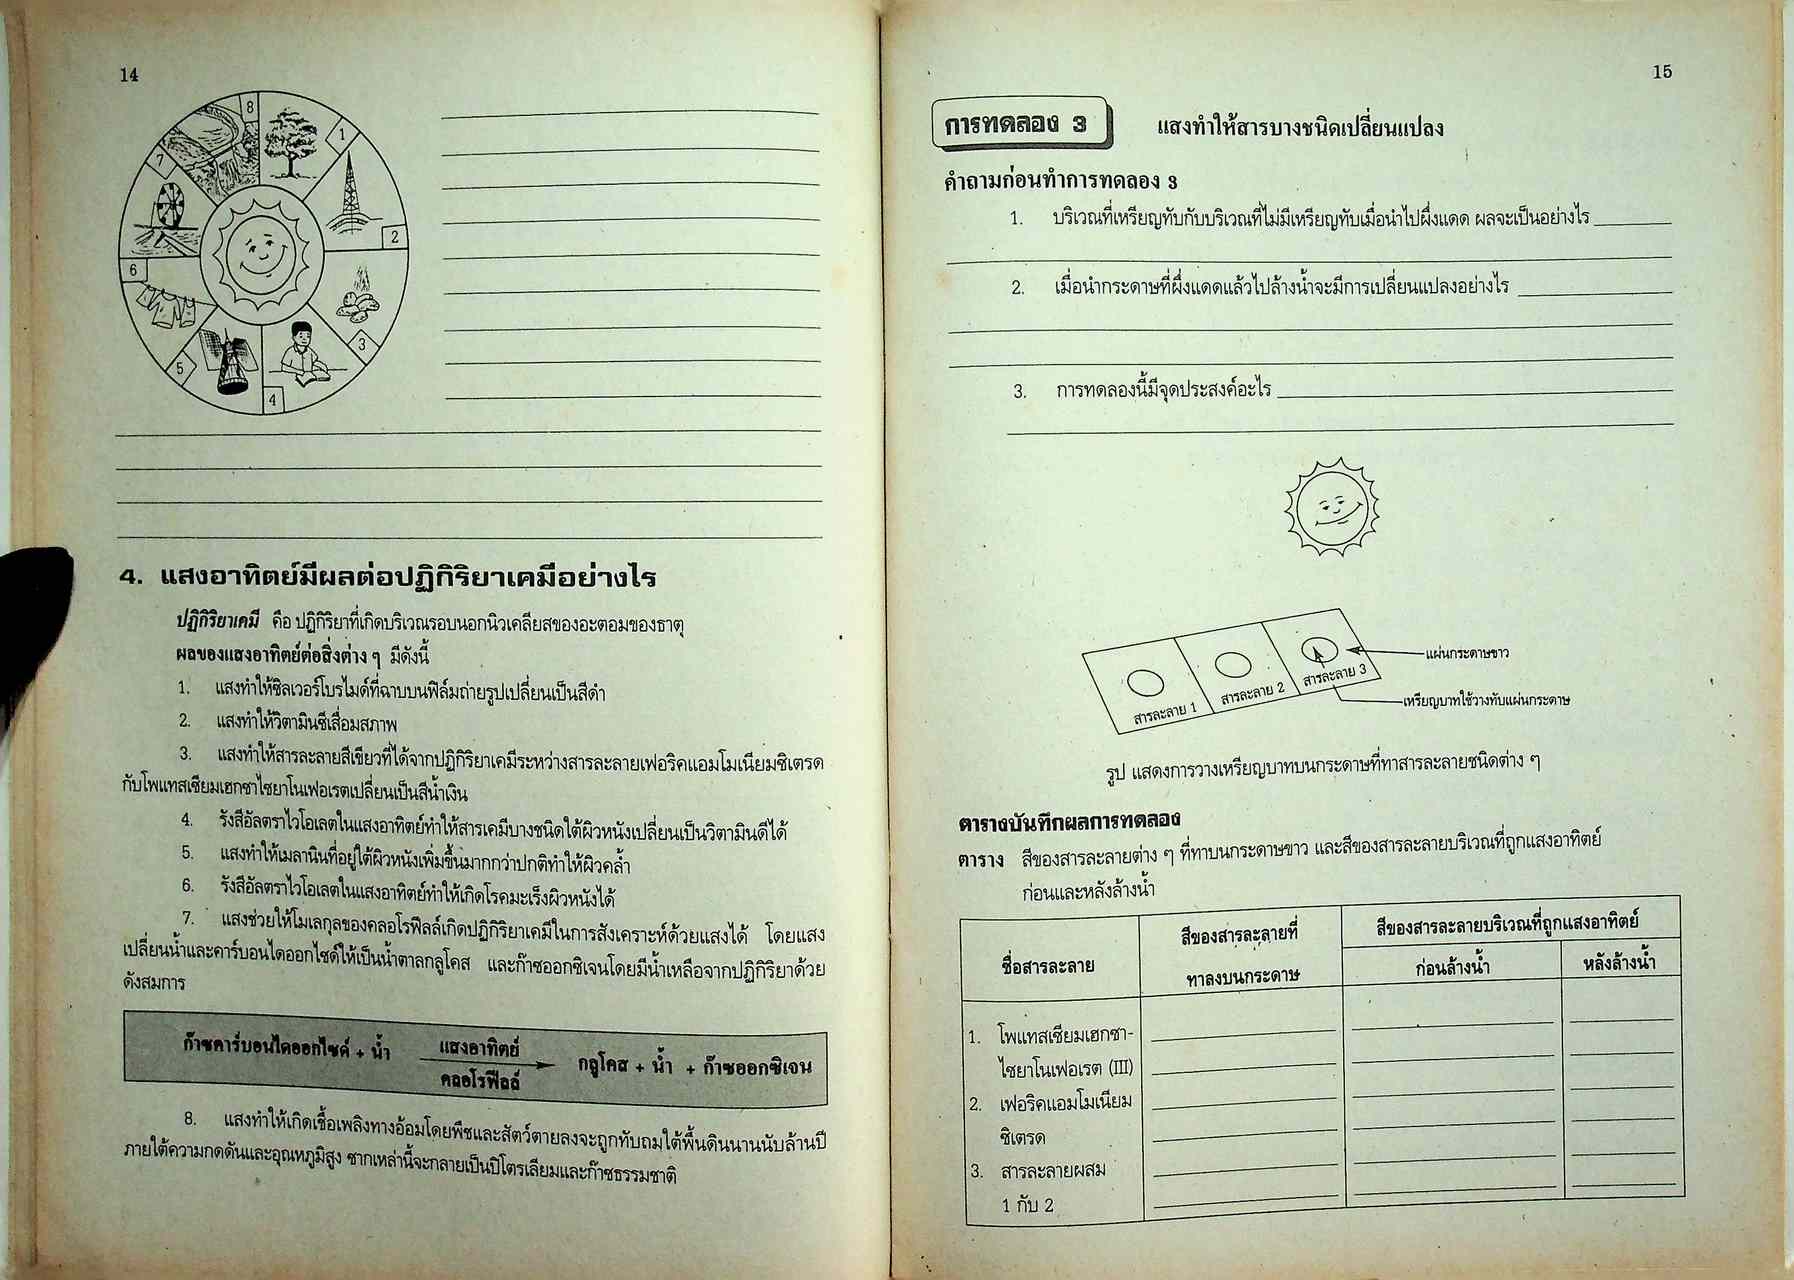 14
8
1
7
2
6
3
5
4
4. แสงอาทิตย์มีผลต่อปฏิกิริยาเคมีอย่างไร
ปฏิกิริยาเคมี คือ ปฏิกิริยาที่เกิดบริเวณรอบนอกนิวเคลียสของอะตอมของธาตุ
ผลของแสงอาทิตย์ต่อสิ่งต่าง ๆ มีดังนี้
1. แสงทำให้ซิลเวอร์โบรไมด์ที่ฉาบบนฟิล์มถ่ายรูปเปลี่ยนเป็นสีดำ
2. แสงทำให้วิตามินซีเสื่อมสภาพ
3. แสงทำให้สารละลายสีเขียวที่ได้จากปฏิกิริยาเคมีระหว่างสารละลายเฟอริคแอมโมเนียมซิเตรด
กับโพแทสเซียมเฮกซาไซยาโนเฟอเรตเปลี่ยนเป็นสีน้ำเงิน
4. รังสีอัลตราไวโอเลตในแสงอาทิตย์ทำให้สารเคมีบางชนิดใต้ผิวหนังเปลี่ยนเป็นวิตามินดีได้
5. แสงทำให้เมลานินที่อยู่ใต้ผิวหนังเพิ่มขึ้นมากกว่าปกติทำให้ผิวคล้ำ
6. รังสีอัลตราไวโอเลตในแสงอาทิตย์ทำให้เกิดโรคมะเร็งผิวหนังได้
7. แสงช่วยให้โมเลกุลของคลอโรฟีลล์เกิดปฏิกิริยาเคมีในการสังเคราะห์ด้วยแสงได้ โดยแสง
เปลี่ยนน้ำและคาร์บอนไดออกไซด์ให้เป็นน้ำตาลกลูโคส และก๊าซออกซิเจนโดยมีน้ำเหลือจากปฏิกิริยาด้วย
ดังสมการ
ก๊าซคาร์บอนไดออกไซด์ + น้ำ แสงอาทิตย์ กลูโคส + น้ำ + ก๊าซออกซิเจน
คลอโรฟีลล์
8. แสงทำให้เกิดเชื้อเพลิงทางอ้อมโดยพืชและสัตว์ตายลงจะถูกทับถมใต้พื้นดินนานนับล้านปี
ภายใต้ความกดดันและอุณหภูมิสูง ซากเหล่านี้จะกลายเป็นปิโตรเลียมและก๊าซธรรมชาติ
15
การทดลอง 3 แสงทำให้สารบางชนิดเปลี่ยนแปลง
คำถามก่อนทำการทดลอง 3
1. บริเวณที่เหรียญทับกับบริเวณที่ไม่มีเหรียญทับเมื่อนำไปผึ่งแดด ผลจะเป็นอย่างไร
2. เมื่อนำกระดาษที่ผึ่งแดดแล้วไปล้างน้ำจะมีการเปลี่ยนแปลงอย่างไร
3. การทดลองนี้มีจุดประสงค์อะไร
แผ่นกระดาษขาว
สารละลาย 1 สารละลาย 2 สารละลาย 3
เหรียญบาทใช้วางทับแผ่นกระดาษ
รูป แสดงการวางเหรียญบาทบนกระดาษที่ทาสารละลายชนิดต่าง ๆ
ตารางบันทึกผลการทดลอง
ตาราง สีของสารละลายต่าง ๆ ที่ทาบนกระดาษขาว และสีของสารละลายบริเวณที่ถูกแสงอาทิตย์
ก่อนและหลังล้างน้ำ
ชื่อสารละลาย
สีของสารละลายที่
ทาลงบนกระดาษ
สีของสารละลายบริเวณที่ถูกแสงอาทิตย์
ก่อนล้างน้ำ หลังล้างน้ำ
1. โพแทสเซียมเฮกซา-
ไซยาโนเฟอเรต (III)
2. เฟอริคแอมโมเนียม
ซิเตรด
3. สารละลายผสม
1 กับ 2